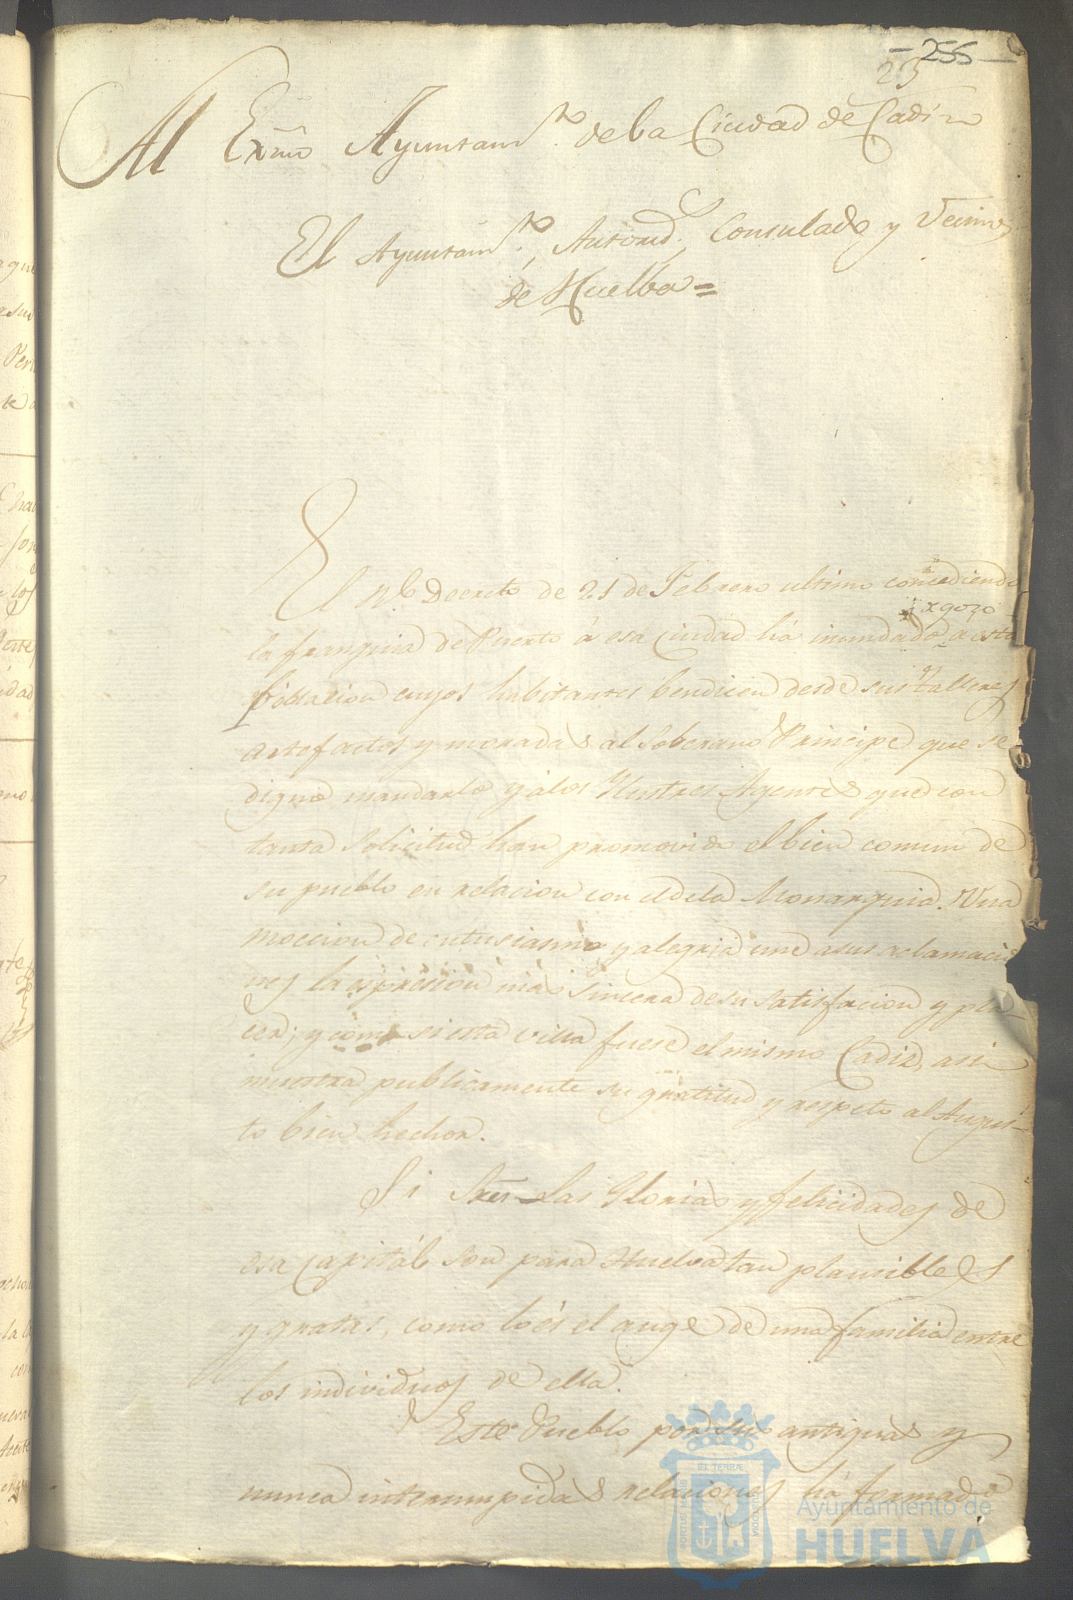 - 255 -
23
Al Exmo Ayuntamto. de la Ciudad de Cadiz
El Ayuntamto., Autorid., Consulado y Vecinos
de Huelba =
El Rl. Decreto de 21 de Febrero ultimo concediendo
la franquicia de Puerto á esa Ciudad há inundado a esta
Poblacion cuyos habitantes bendicen desde sus talleres
artefactos y moradas al Soberano Principe que se
dignó mandarlo y álos Ilustres Agentes que con
tanta solicitud han promovido el bien comun de
su pueblo en relacion con el dela Monarquia. Una
mocion de entusiasmo y alegria une asus aclamacio
nes la expresion más sincera de su satisfaccion y pla-
cer; y como si esta villa fuese el mismo Cadiz, asi
muestra publicamente su gratitud y respeto al Augus-
to bien hechor.
Si Sres. Las Glorias y felicidades de
esa Capitál son para Huelva tan plausibles
y gratas, como lo és el auge de una familia entre
los individuos de ella.
Este Pueblo por sus antiguas y
nunca interrumpidas relaciones há formado
Ayuntamiento de
HUELVA